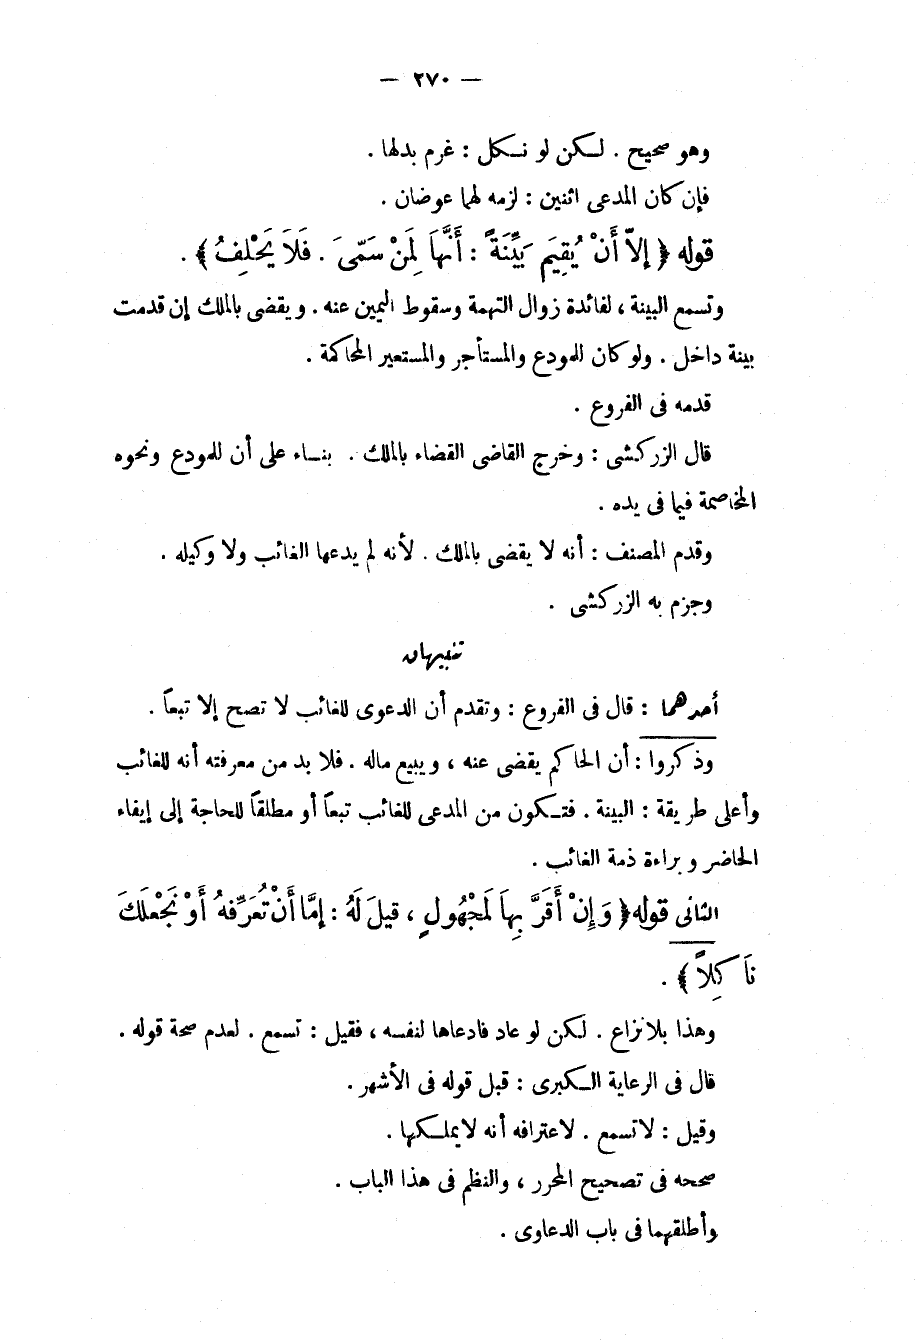 — ٢٧٠ —
وهو صحيح . لـكن لو نـكل : غرم بدلها .
فإن كان المدعى اثنين : لزمه لهما عوضان .
قوله ﴿ إلاَّ أَنْ يُقِيَم بَيِّنَةً : أَنَّهاَ لِمَنْ سَمَّى . فَلاَ يَحْلِفُ ﴾ .
وتسمع البينة ، لفائدة زوال التهمة وسقوط اليمين عنه . ويقضى بالملك إن قدمت
بينة داخل . ولو كان للمودع والمستأجر والمستعير المحاكمة .
قدمه فى الفروع .
قال الزركشى : وخرج القاضى القضاء بالملك . بنـاء على أن للمودع ونحوه
المخاصمة فيما فى يده .
وقدم المصنف : أنه لا يقضى بالملك . لأنه لم يدعها الغائب ولا وكيله .
وجزم به الزركشى .
تنبيهان
أحدهما : قال فى الفروع : وتقدم أن الدعوى للغائب لا تصح إلا تبعاً .
وذكروا : أن الحاكم يقضى عنه ، ويبيع ماله . فلا بد من معرفته أنه للغائب
وأعلى طريقة : البينة . فتـكون من المدعى للغائب تبعاً أو مطلقاً للحاجة إلى إيفاء
الحاضر وبراءة ذمة الغائب .
الثانى قوله ﴿ وَإِنْ أَقَرَّ بِهاَ لَمِجْهُولٍ ، قيِلَ لَهُ : إمَّا أَنْ تُعَرِّفهُ أَوْ نَجْعَلَكَ
نَاكِلاً ﴾ .
وهذا بلا نزاع . لـكن لو عاد فادعاها لنفسه ، فقيل : تسمع . لعدم صحة قوله .
قال فى الرعاية الـكبرى : قبل قوله فى الأشهر .
وقيل : لا تسمع . لاعترافه أنه لا يملـكها .
صححه فى تصحيح المحرر ، والنظم فى هذا الباب .
وأطلقهما فى باب الدعاوى .